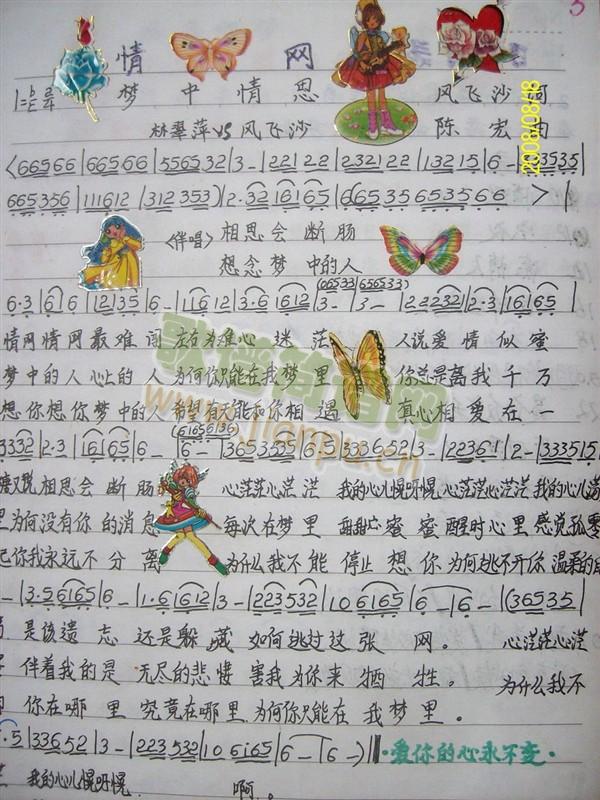 3
情 网
1=♭E 2/4 梦 中 情 思 风飞沙 词
林翠萍 vs 风飞沙 陈 宏 曲
2008/08/18
<66566|66566|556532|3-|22|22|232|22|13215|6-|3535|
665356|111612|312353|2·32|16165|
>|
<伴唱>相思会断肠
想念梦中的人
6·3|6 6|1235|6-|1612|3·6 1612|3-|3-|2223
2|2·3|16165|
(06533|656533)
情网情网最难闯 左右为难心迷茫 人说爱情似蜜
梦中的人心上的人为何你只能在我梦里 你总是离我千万
想你想你梦中的人希望有天能和你相遇 真心相爱在一
3332|2·3|16165|6-|6-|
(6165 6136)
相思会断肠 心茫茫心茫茫 我的心儿慌呀慌心茫茫心茫茫我的心儿
里为何没有你的消息 每次在梦里 甜甜蜜蜜醒时心里感觉孤零
你我永远不分离 为什么我不能停止想你为何逃不开你温柔的
-|3·56165|6-|1·61612|3-|223532|10 6165|6-|6-|(36535|
是该遗忘还是躲藏如何逃过这张网。 心茫茫心茫
伴着我的是无尽的悲悽害我为你来牺牲。 为什么我不
你在哪里究竟在哪里为何你只能在我梦里。
·5|33652|3-|223532|10 6165|6-|6-)‖ ·爱你的心永不变·
我的心儿慌呀慌. 啊。
歌谱简谱网
www.jianpu.cn